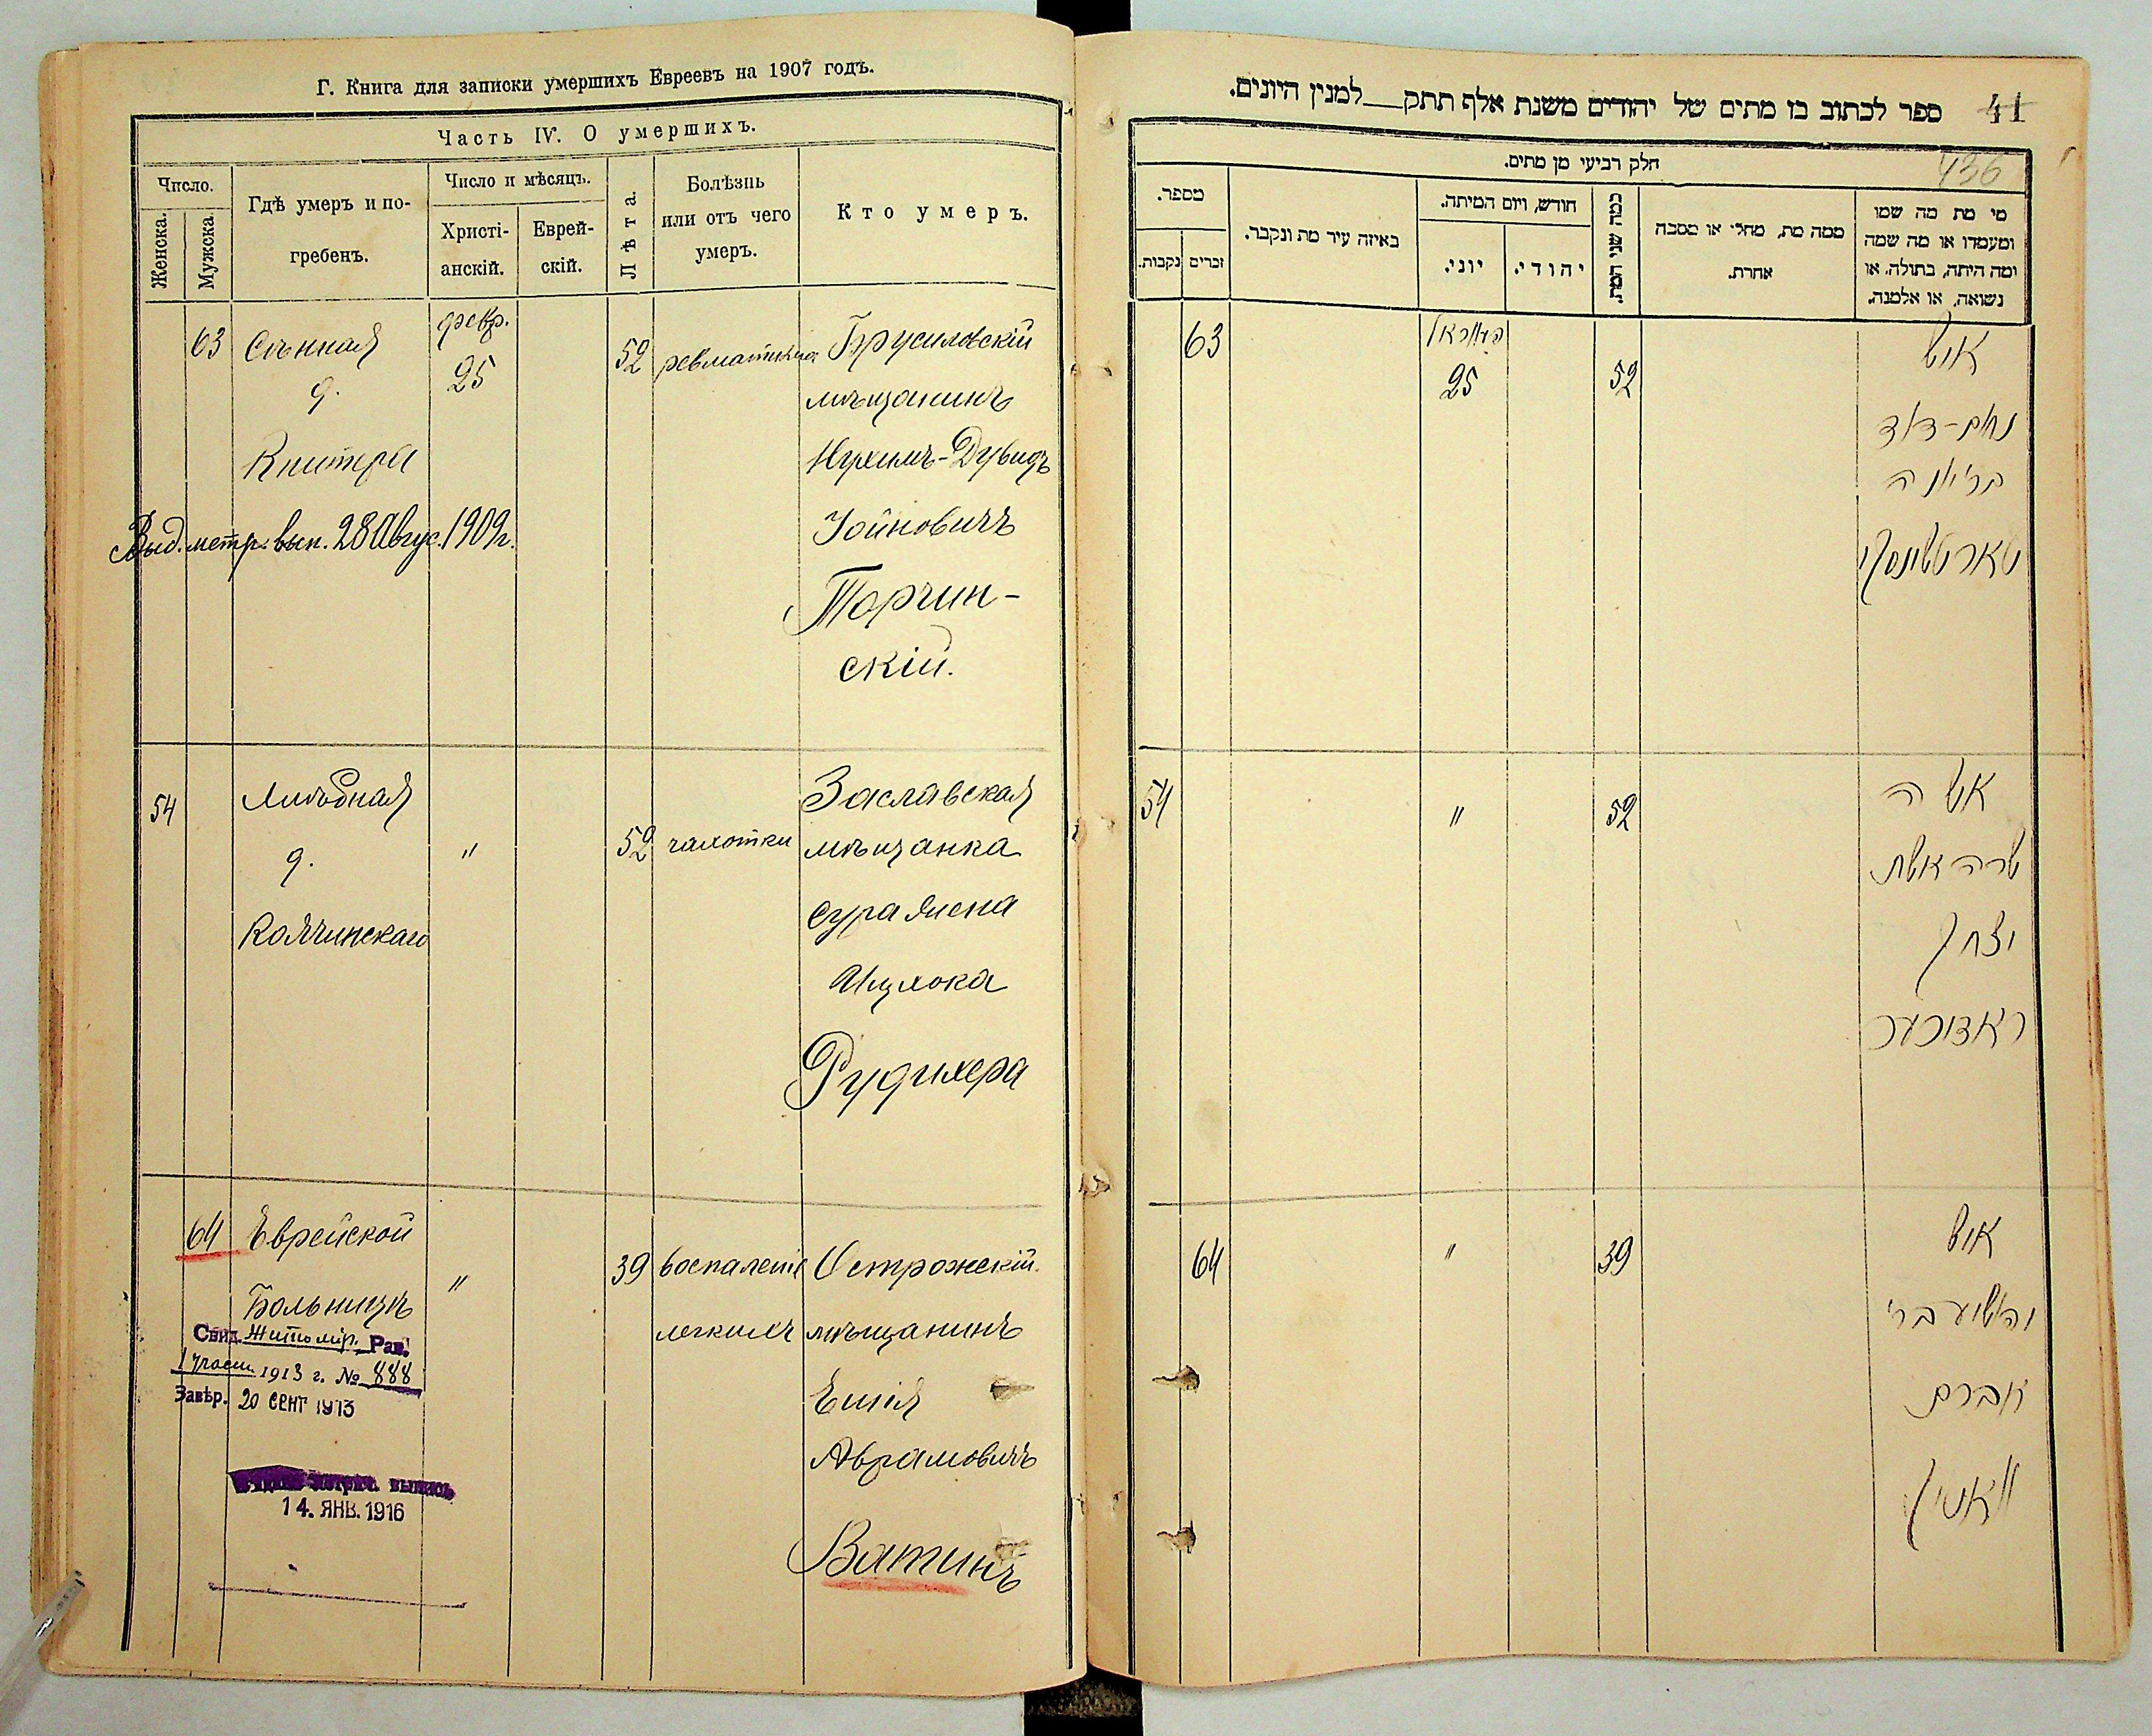 Г. Книга для записки умершихъ Евреевъ на 1907 годъ.
Часть IV. О умершихъ.
Число.
Женска.
Мужска.
Гдѣ умеръ и по-
гребенъ.
Число и мѣсяцъ.
Христі-
анскій.
Еврей-
скій.
Лѣта.
Болѣзнь
или отъ чего
умеръ.
Кто умеръ.
63
Сѣнная
д.
февр.
25
52
ревматизма
Брусиловскій
мѣщанинъ
Нухимъ-Дувидъ
Іойновичъ
Торчин-
скій.
Выд. метр. вып. 28 Авгус. 1909 г.
54
д.
Колчинскаго
"
52
чахотки
Заславская
мѣщанка
Сура жена
Ицхока
Рудихера
64
Еврейской
Больницѣ
"
39
воспаленіе
легкихъ
Острожскій
мѣщанинъ
Ешія
Аврамовичъ
Ватинъ
Свид. Житомір. Рав.
1 участ. 1913 г. № 888
Завѣр. 20 СЕНТ 1913
метрич. выпись
14. ЯНВ. 1916
41
ספר לכתוב בו מתים של יהודים משנת אלף תתק__למנין היונים.
436
חלק רביעי מן מתים.
מספר.
נקבות.
זכרים
באיזה עיר מת ונקבר.
חודש, ויום המיתה.
יוני.
יהודי.
כמה שני המת.
ממה מת, מחלי או מסבה
אחרת.
מי מת מה שמו
ומעמדו או מה שמה
ומה היתה, בתולה, או
נשואה, או אלמנה.
63
25
52
איש
נחום-דוד
בר יונה
טארטשינסקי
54
"
52
אשה
שרה אשת
יצחק
ראדיכער
64
"
39
איש
יהושיע בר'
אברם
וואטין